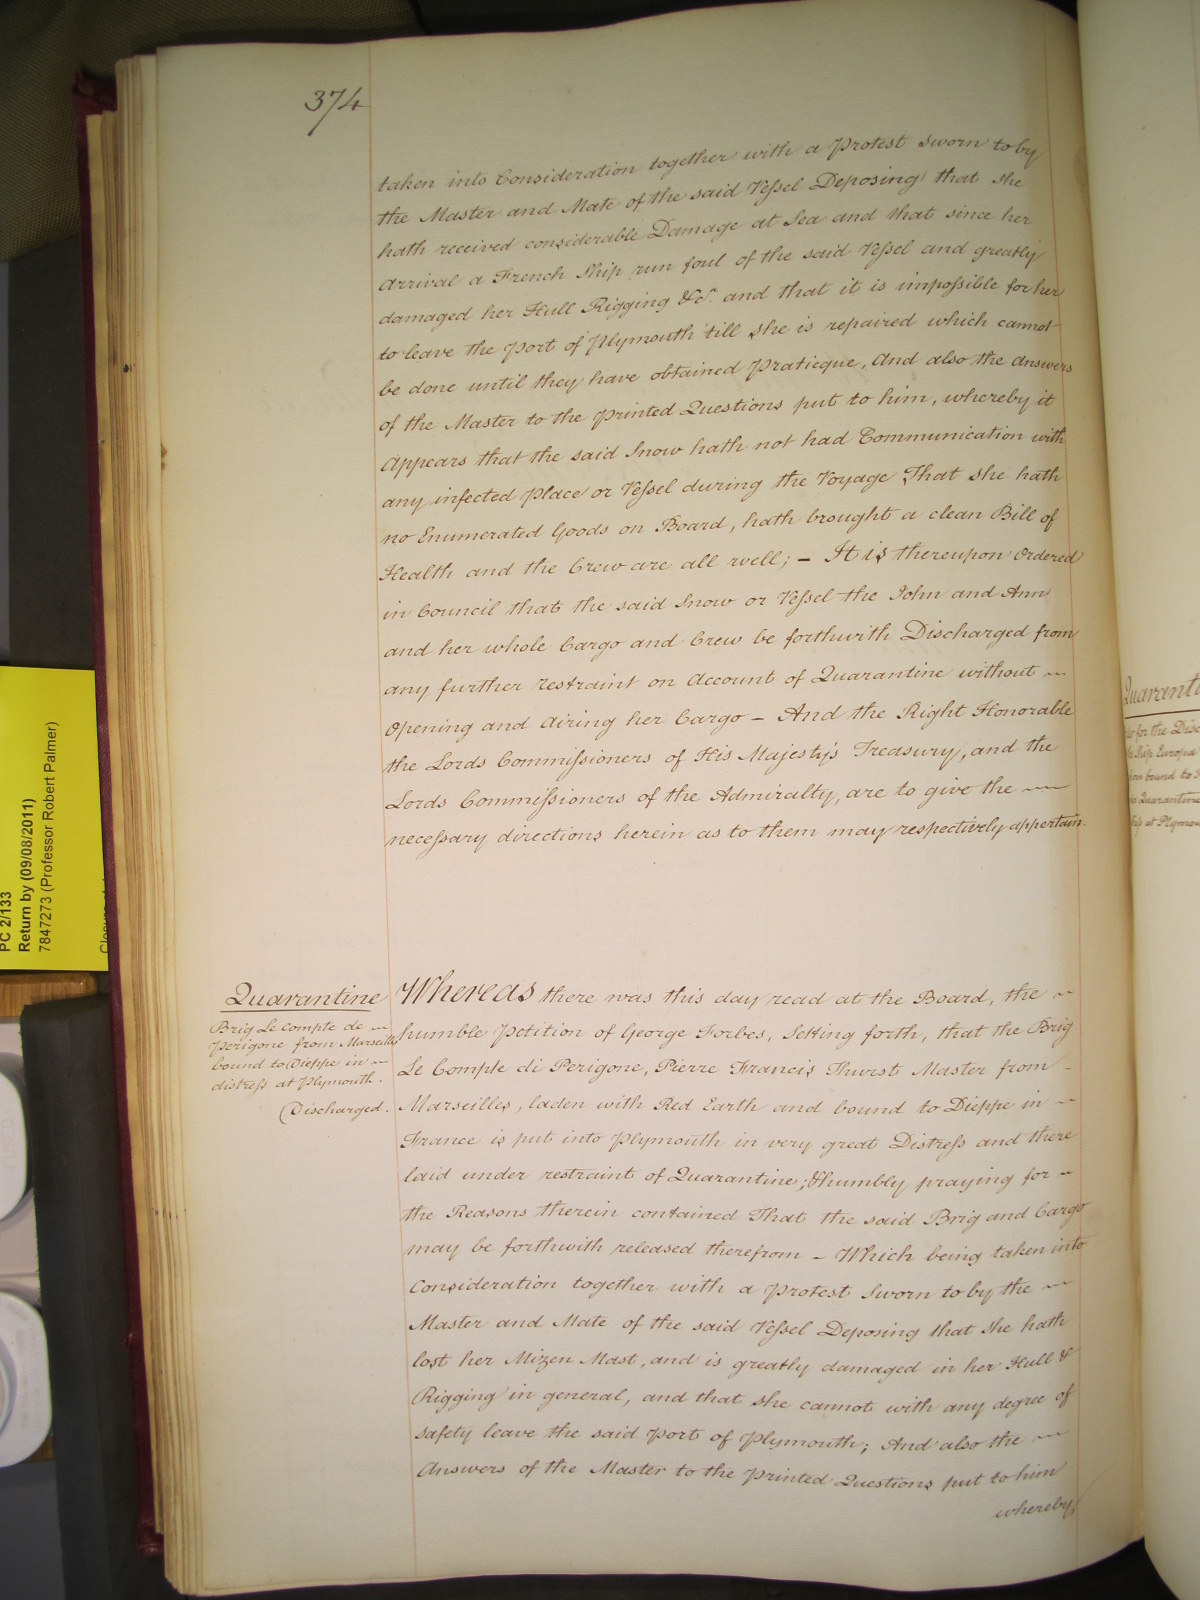 374
taken into Consideration together with a Protest sworn to by
the Master and Mate of the said Vessel Deposing that she
hath received considerable Damage at Sea and that since her
Arrival a French Ship run foul of the said Vessel and greatly
damaged her Hull Rigging &c.a and that it is impossible for her
to leave the Port of Plymouth till she is repaired which cannot
be done until they have obtained Praticque, And also the Answers
of the Master to the Printed Questions put to him, whereby it
Appears that the said Snow hath not had Communication with
any infected Place or Vessel during the Voyage That she hath
no Enumerated Goods on Board, hath brought a clean Bill of
Health and the Crew are all well; – It is thereupon Ordered
in Council that the said Snow or Vessel the John and Ann
and her whole Cargo and Crew be forthwith Discharged from
any further restraint on Account of Quarantine without
Opening and Airing her Cargo – And the Right Honorable
the Lords Commissioners of His Majesty's Treasury, and the
Lords Commissioners of the Admiralty, are to give the
necessary directions herein as to them may respectively appertain.
Quarantine
Brig Le Compte de
Perigone from Marseilles
bound to Dieppe in
distress at Plymouth.
Discharged.
Whereas there was this day read at the Board, the
humble Petition of George Forbes, Setting forth, that the Brig
Le Compte di Perigone, Pierre Francis Thurst Master from
Marseilles, laden with Red Earth and bound to Dieppe in
France is put into Plymouth in very great Distress and there
laid under restraint of Quarantine; & humbly praying for
the Reasons therein contained That the said Brig and Cargo
may be forthwith released therefrom – Which being taken into
Consideration together with a Protest Sworn to by the
Master and Mate of the said Vessel Deposing that she hath
lost her Mizen Mast, and is greatly damaged in her Hull &
Rigging in general, and that she cannot with any degree of
safety leave the said Port of Plymouth; And also the
Answers of the Master to the Printed Questions put to him
whereby
PC 2/133
Return by (09/08/2011)
7847273 (Professor Robert Palmer)
Quaranti
for the Disc
Ship Europa
bound to
Quarantine
at Plymou